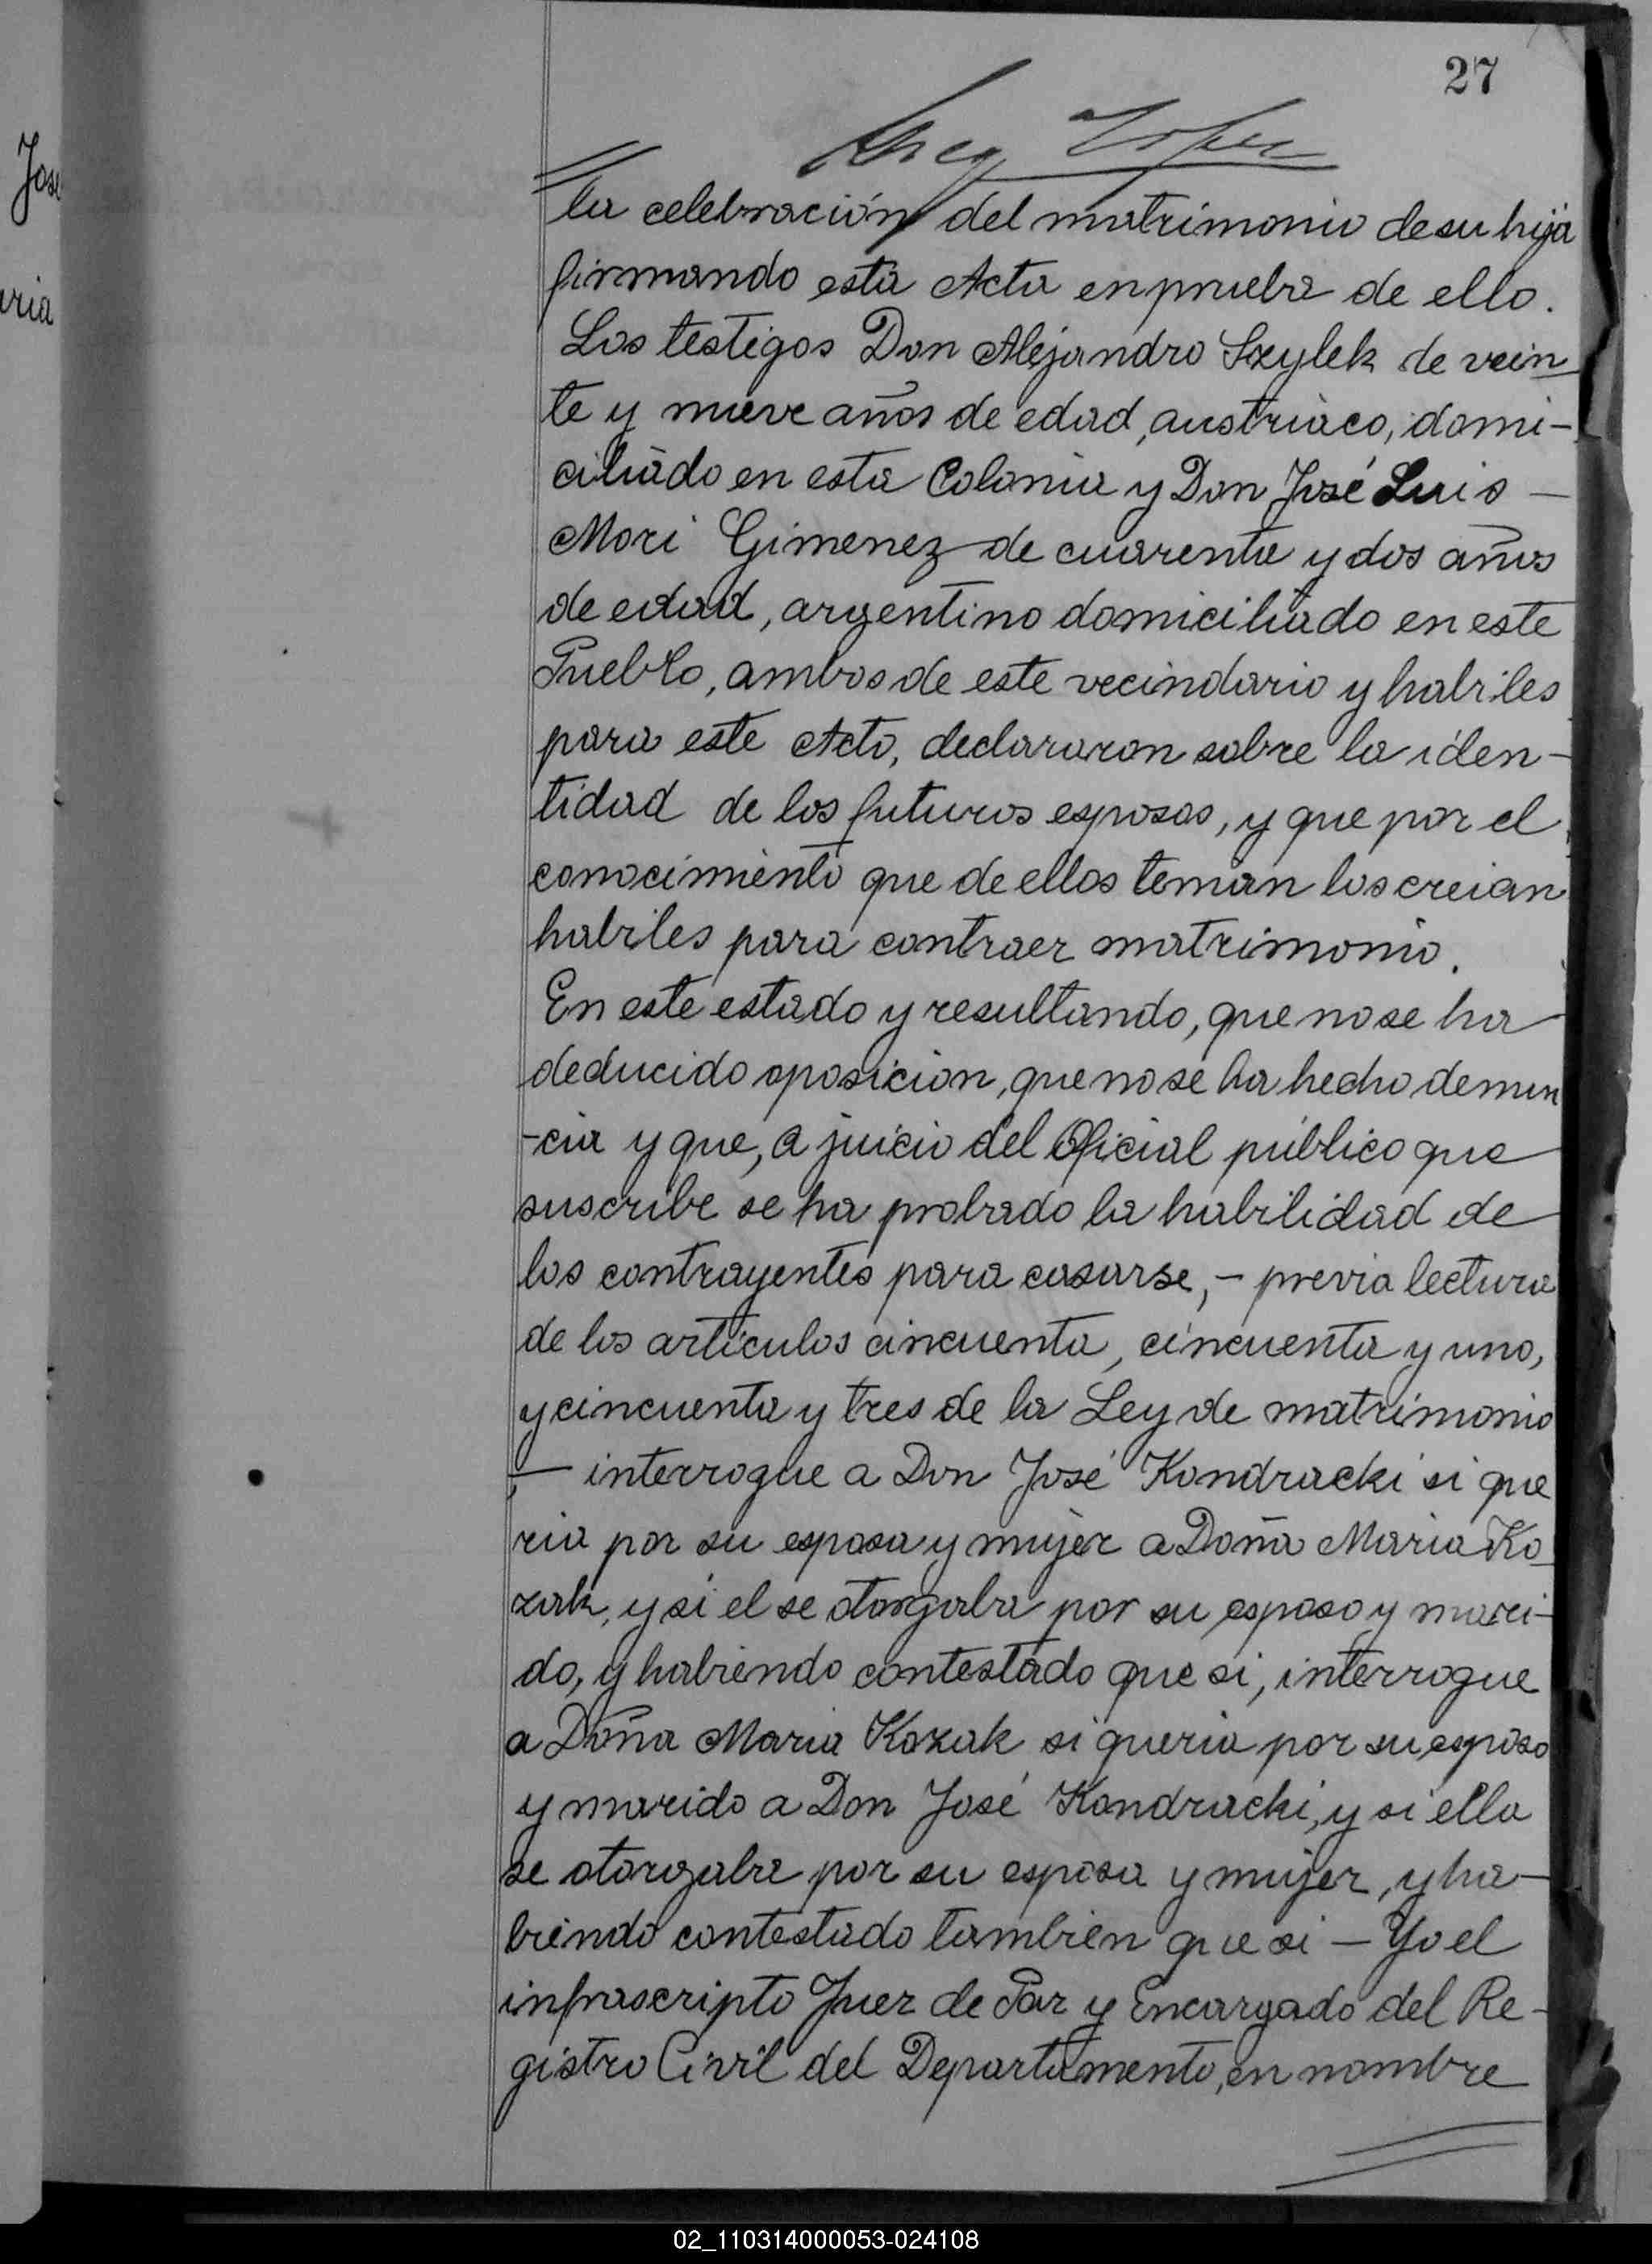 27
Jose
aria
la celebración del matrimonio de su hija
firmando esta Acta en prueba de ello.
Los testigos Don Alejandro Szylek de vein
te y nueve años de edad, austriaco, domi-
ciliado en esta Colonia y Don José Luis —
Mori Gimenez de cuarenta y dos años
de edad, argentino domiciliado en este
Pueblo, ambos de este vecindario y habiles
para este Acto, declararon sobre la iden-
tidad de los futuros esposos, y que por el
conocimiento que de ellos tenian los creian
habiles para contraer matrimonio.
En este estado y resultando, que no se ha
deducido oposicion, que no se ha hecho denun
-cia y que, a juicio del Oficial público que
suscribe se ha probado la habilidad de
los contrayentes para casarse, - previa lectura
de los artículos cincuenta, cincuenta y uno,
y cincuenta y tres de la Ley de matrimonio
, — interrogue a Don José Kondracki si que
ria por su esposa y mujer a Doña Maria Ko
zak, y si el se otorgaba por su esposo y mari-
do, y habiendo contestado que si, interrogue
a Doña Maria Kozak si queria por su esposo
y marido a Don José Kondracki, y si ella
se otorgaba por su esposa y mujer, y ha-
biendo contestado tambien que si — Yo el
infrascripto Juez de Paz y Encargado del Re-
gistro Civil del Departamento, en nombre
02_110314000053-024108